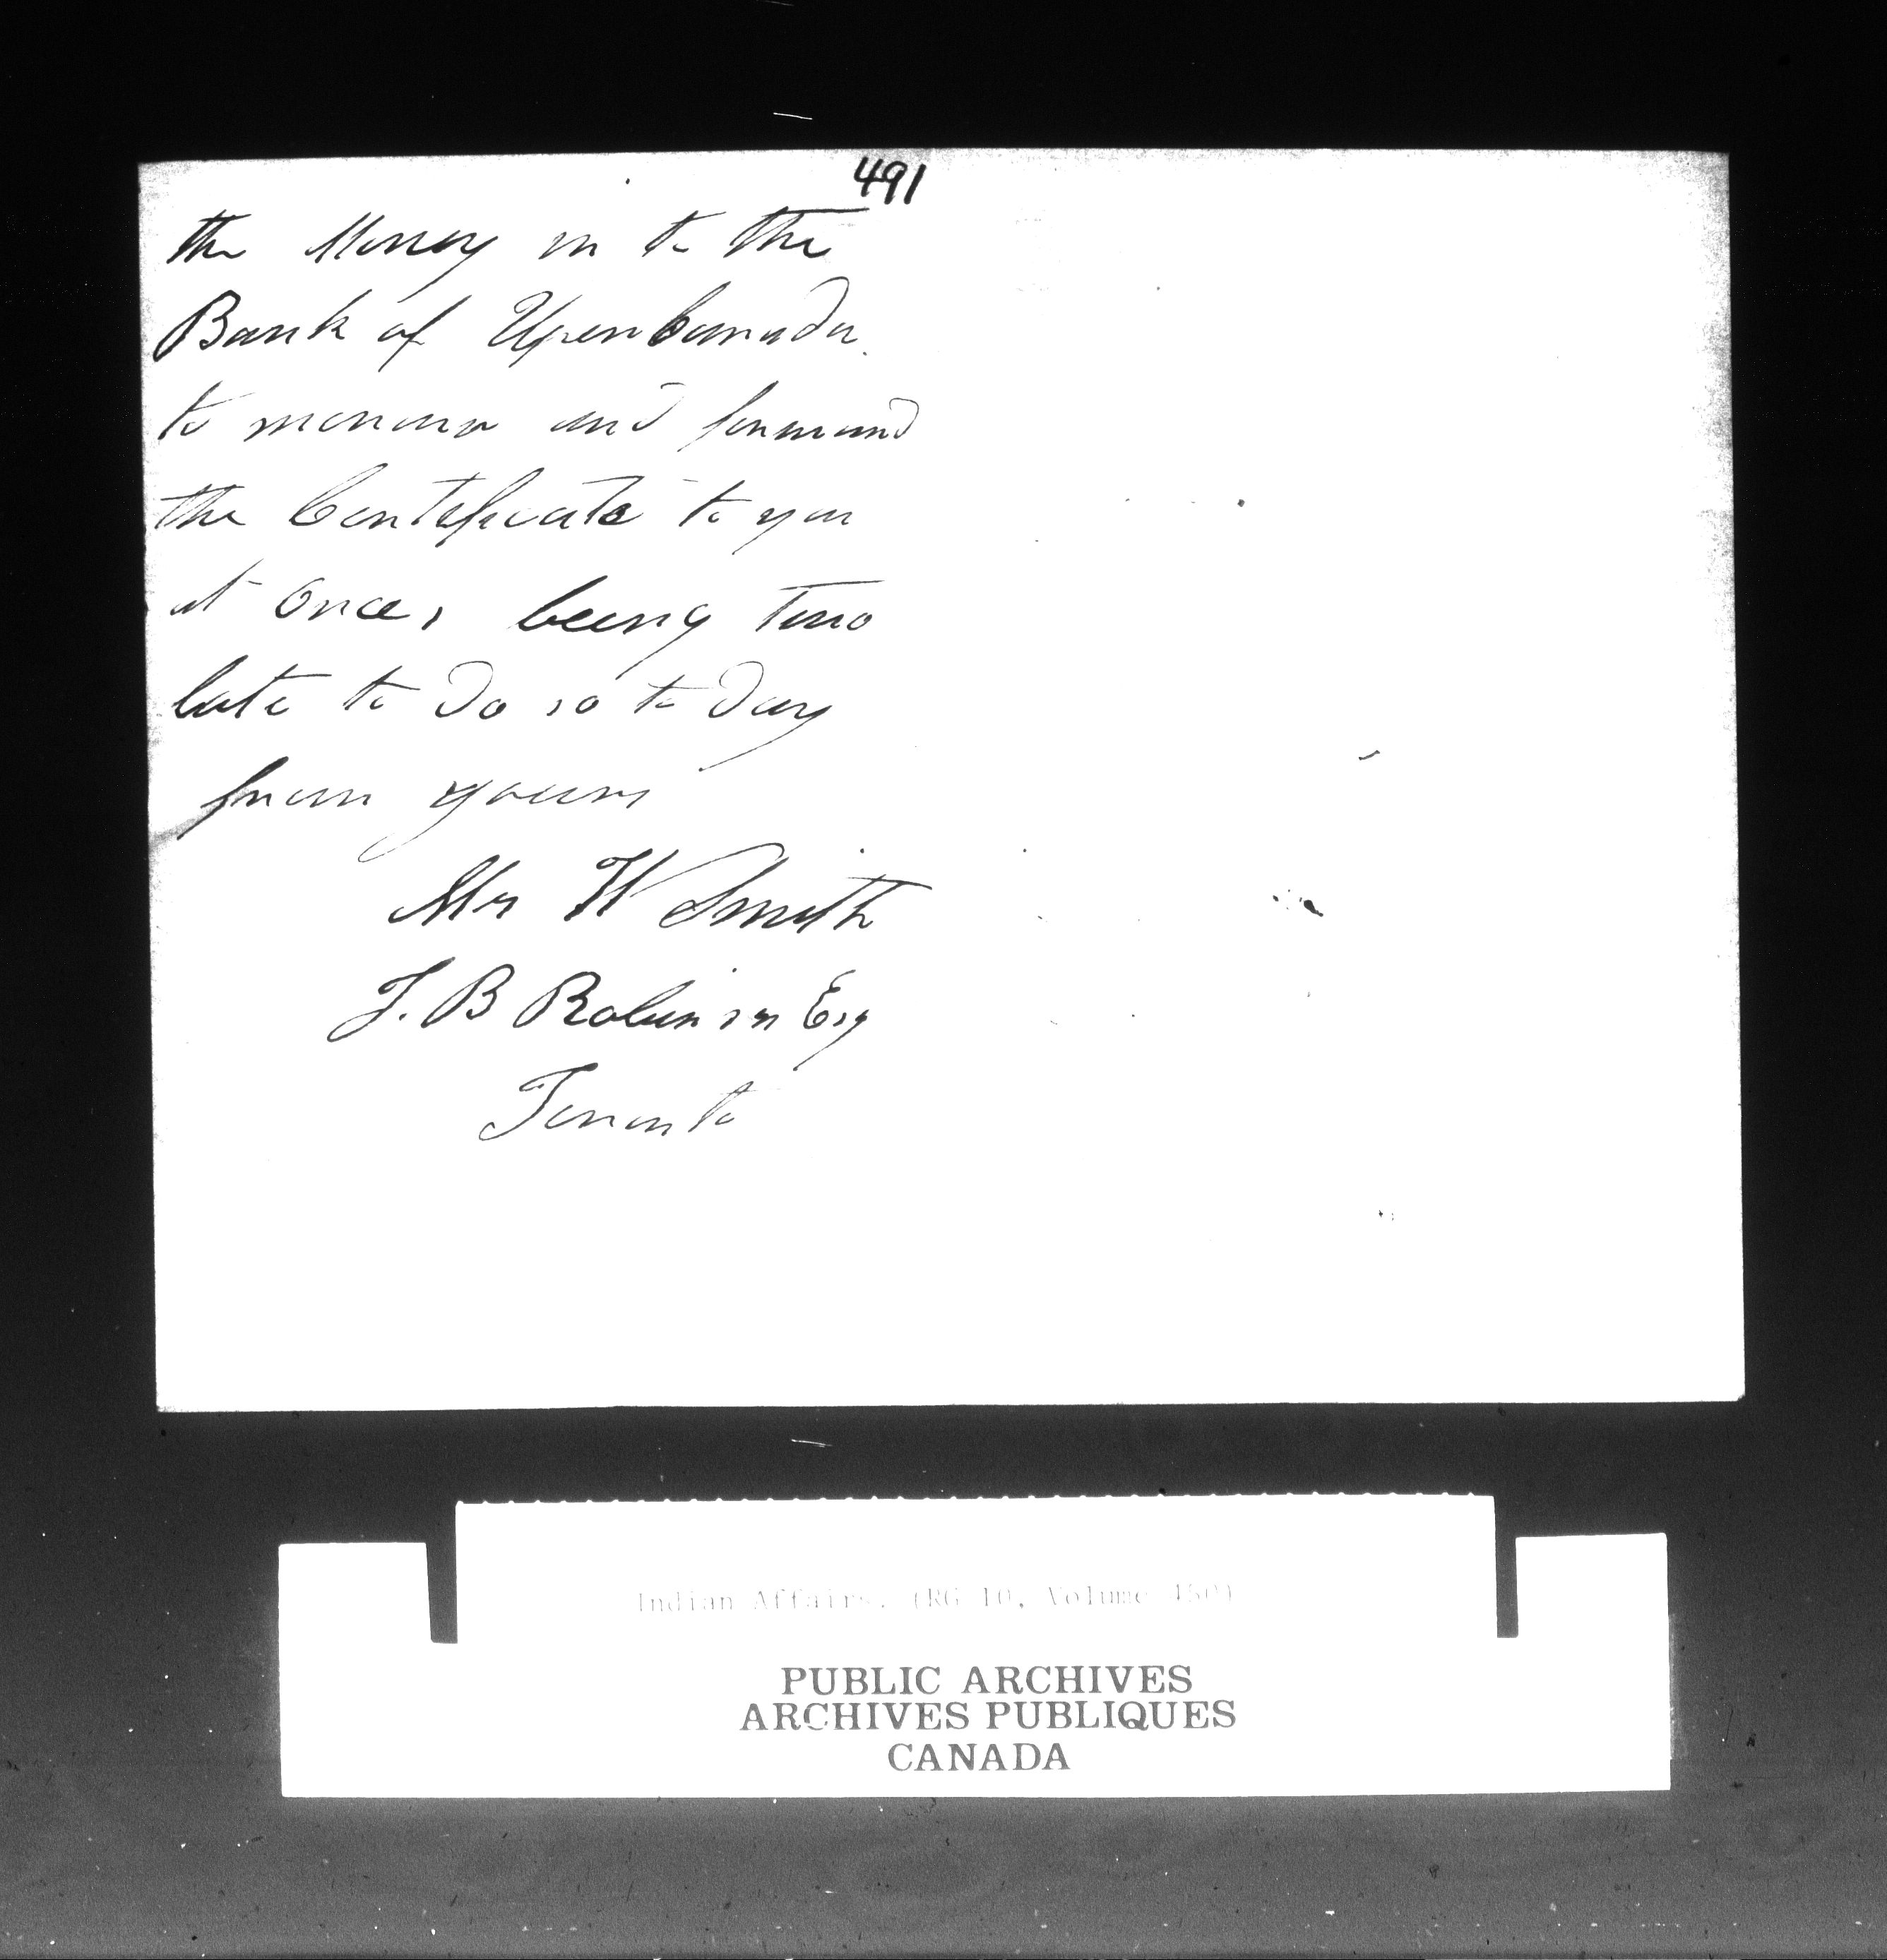 491
the Money in to the
Bank of Uper Canada.
to morrow and forward
the Certificate to you
at Once, being Two
late to do so to day
from yours
Mr W Smith
J. B Robinson Esq
Toronto
Indian Affairs. (RG 10, Volume 450)
PUBLIC ARCHIVES
ARCHIVES PUBLIQUES
CANADA